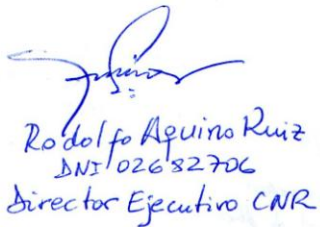 Rodolfo Aquino Ruiz
DNI 02682706
Director Ejecutivo CNR